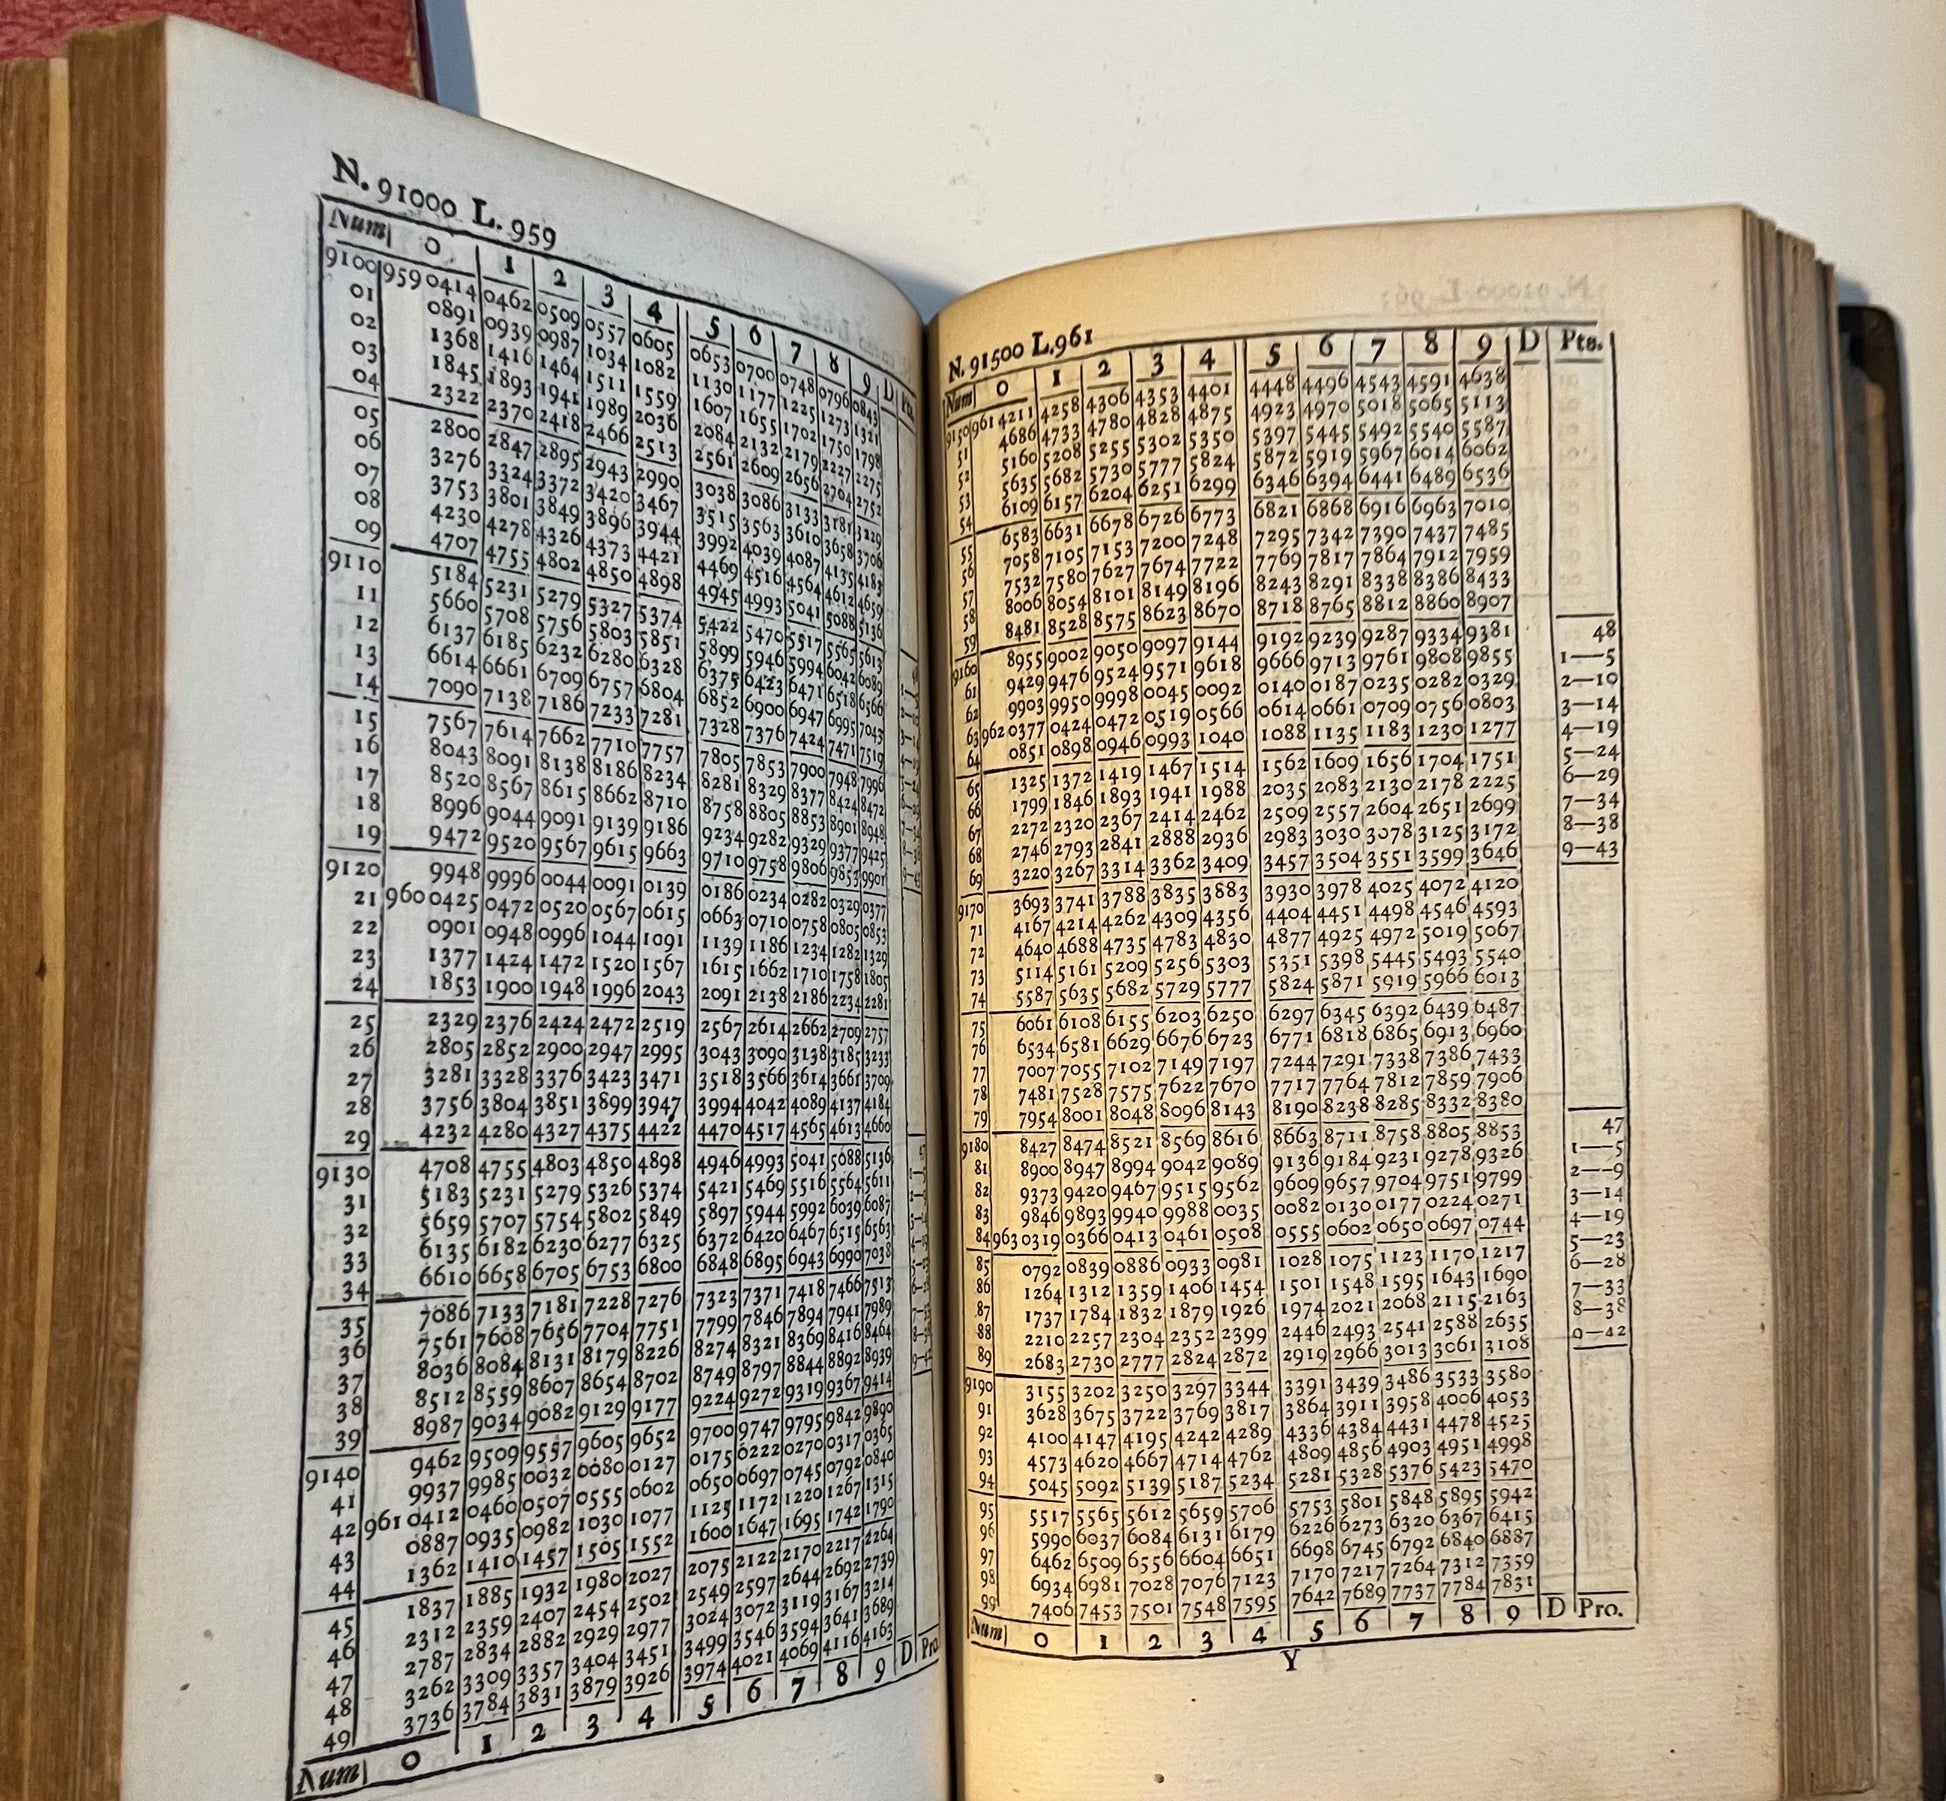 N. 91000 L. 959
Num 0 1 2 3 4 5 6 7 8 9 D Pts.
9100 959 0414 0462 0509 0557 0605 0653 0700 0748 0796 0843
01 0891 0939 0987 1034 1082 1130 1177 1225 1273 1321
02 1368 1416 1464 1511 1559 1607 1655 1702 1750 1798
03 1845 1893 1941 1989 2036 2084 2132 2179 2227 2275
04 2322 2370 2418 2466 2513 2561 2609 2656 2704 2752
05 2800 2847 2895 2943 2990 3038 3086 3133 3181 3229
06 3276 3324 3372 3420 3467 3515 3563 3610 3658 3706
07 3753 3801 3849 3896 3944 3992 4039 4087 4135 4183
08 4230 4278 4326 4373 4421 4469 4516 4564 4612 4659
09 4707 4755 4802 4850 4898 4945 4993 5041 5088 5136
9110 5184 5231 5279 5327 5374 5422 5470 5517 5565 5613
11 5660 5708 5756 5803 5851 5899 5946 5994 6042 6089
12 6137 6185 6232 6280 6328 6375 6423 6471 6518 6566
13 6614 6661 6709 6757 6804 6852 6900 6947 6995 7043
14 7090 7138 7186 7233 7281 7328 7376 7424 7471 7519
15 7567 7614 7662 7710 7757 7805 7853 7900 7948 7996
16 8043 8091 8138 8186 8234 8281 8329 8377 8424 8472
17 8520 8567 8615 8662 8710 8758 8805 8853 8901 8948
18 8996 9044 9091 9139 9186 9234 9282 9329 9377 9425
19 9472 9520 9567 9615 9663 9710 9758 9806 9853 9901
9120 9948 9996 0044 0091 0139 0186 0234 0282 0329 0377
21 960 0425 0472 0520 0567 0615 0663 0710 0758 0805 0853
22 0901 0948 0996 1044 1091 1139 1186 1234 1282 1329
23 1377 1424 1472 1520 1567 1615 1662 1710 1758 1805
24 1853 1900 1948 1996 2043 2091 2138 2186 2234 2281
25 2329 2376 2424 2472 2519 2567 2614 2662 2709 2757
26 2805 2852 2900 2947 2995 3043 3090 3138 3185 3233
27 3281 3328 3376 3423 3471 3518 3566 3614 3661 3709
28 3756 3804 3851 3899 3947 3994 4042 4089 4137 4184
29 4232 4280 4327 4375 4422 4470 4517 4565 4613 4660
9130 4708 4755 4803 4850 4898 4946 4993 5041 5688 5136
31 5183 5231 5279 5326 5374 5421 5469 5516 5564 5611
32 5659 5707 5754 5802 5849 5897 5944 5992 6039 6087
33 6135 6182 6230 6277 6325 6372 6420 6467 6515 6563
34 6610 6658 6705 6753 6800 6848 6895 6943 6990 7038
35 7086 7133 7181 7228 7276 7323 7371 7418 7466 7513
36 7561 7608 7656 7704 7751 7799 7846 7894 7941 7989
37 8036 8084 8131 8179 8226 8274 8321 8369 8416 8464
38 8512 8559 8607 8654 8702 8749 8797 8844 8892 8939
39 8987 9034 9082 9129 9177 9224 9272 9319 9367 9414
9140 9462 9509 9557 9605 9652 9700 9747 9795 9842 9890
41 9937 9985 0032 0080 0127 0175 6222 0270 0317 0365
42 961 0412 0460 0507 0555 0602 0650 0697 0745 0792 0840
43 0887 0935 0982 1030 1077 1125 1172 1220 1267 1315
44 1362 1410 1457 1505 1552 1600 1647 1695 1742 1790
45 1837 1885 1932 1980 2027 2075 2122 2170 2217 2264
46 2312 2359 2407 2454 2502 2549 2597 2644 2692 2739
47 2787 2834 2882 2929 2977 3024 3072 3119 3167 3214
48 3262 3309 3357 3404 3451 3499 3546 3594 3641 3689
49 3736 3784 3831 3879 3926 3974 4021 4069 4116 4163
Num 0 1 2 3 4 5 6 7 8 9 D Pro
N. 91500 L.961
Num 0 1 2 3 4 5 6 7 8 9 D Pts.
9150 961 4211 4258 4306 4353 4401 4448 4496 4543 4591 4638
51 4686 4733 4780 4828 4875 4923 4970 5018 5065 5113
52 5160 5208 5255 5302 5350 5397 5445 5492 5540 5587
53 5635 5682 5730 5777 5824 5872 5919 5967 6014 6062
54 6109 6157 6204 6251 6299 6346 6394 6441 6489 6536
55 6583 6631 6678 6726 6773 6821 6868 6916 6963 7010
56 7058 7105 7153 7200 7248 7295 7342 7390 7437 7485
57 7532 7580 7627 7674 7722 7769 7817 7864 7912 7959
58 8006 8054 8101 8149 8196 8243 8291 8338 8386 8433
59 8481 8528 8575 8623 8670 8718 8765 8812 8860 8907
9160 8955 9002 9050 9097 9144 9192 9239 9287 9334 9381 48
61 9429 9476 9524 9571 9618 9666 9713 9761 9808 9855 1—5
62 9903 9950 9998 0045 0092 0140 0187 0235 0282 0329 2—10
63 962 0377 0424 0472 0519 0566 0614 0661 0709 0756 0803 3—14
64 0851 0898 0946 0993 1040 1088 1135 1183 1230 1277 4—19
65 1325 1372 1419 1467 1514 1562 1609 1656 1704 1751 5—24
66 1799 1846 1893 1941 1988 2035 2083 2130 2178 2225 6—29
67 2272 2320 2367 2414 2462 2509 2557 2604 2651 2699 7—34
68 2746 2793 2841 2888 2936 2983 3030 3078 3125 3172 8—38
69 3220 3267 3314 3362 3409 3457 3504 3551 3599 3646 9—43
9170 3693 3741 3788 3835 3883 3930 3978 4025 4072 4120
71 4167 4214 4262 4309 4356 4404 4451 4498 4546 4593
72 4640 4688 4735 4783 4830 4877 4925 4972 5019 5067
73 5114 5161 5209 5256 5303 5351 5398 5445 5493 5540
74 5587 5635 5682 5729 5777 5824 5871 5919 5966 6013
75 6061 6108 6155 6203 6250 6297 6345 6392 6439 6487
76 6534 6581 6629 6676 6723 6771 6818 6865 6913 6960
77 7007 7055 7102 7149 7197 7244 7291 7338 7386 7433
78 7481 7528 7575 7622 7670 7717 7764 7812 7859 7906
79 7954 8001 8048 8096 8143 8190 8238 8285 8332 8380
9180 8427 8474 8521 8569 8616 8663 8711 8758 8805 8853 47
81 8900 8947 8994 9042 9089 9136 9184 9231 9278 9326 1—5
82 9373 9420 9467 9515 9562 9609 9657 9704 9751 9799 2—9
83 9846 9893 9940 9988 0035 0082 0130 0177 0224 0271 3—14
84 963 0319 0366 0413 0461 0508 0555 0602 0650 0697 0744 4—19
85 0792 0839 0886 0933 0981 1028 1075 1123 1170 1217 5—23
86 1264 1312 1359 1406 1454 1501 1548 1595 1643 1690 6—28
87 1737 1784 1832 1879 1926 1974 2021 2068 2115 2163 7—33
88 2210 2257 2304 2352 2399 2446 2493 2541 2588 2635 8—38
89 2683 2730 2777 2824 2872 2919 2966 3013 3061 3108 9—42
9190 3155 3202 3250 3297 3344 3391 3439 3486 3533 3580
91 3628 3675 3722 3769 3817 3864 3911 3958 4006 4053
92 4100 4147 4195 4242 4289 4336 4384 4431 4478 4525
93 4573 4620 4667 4714 4762 4809 4856 4903 4951 4998
94 5045 5092 5139 5187 5234 5281 5328 5376 5423 5470
95 5517 5565 5612 5659 5706 5753 5801 5848 5895 5942
96 5990 6037 6084 6131 6179 6226 6273 6320 6367 6415
97 6462 6509 6556 6604 6651 6698 6745 6792 6840 6887
98 6934 6981 7028 7076 7123 7170 7217 7264 7312 7359
99 7406 7453 7501 7548 7595 7642 7689 7737 7784 7831
Num 0 1 2 3 4 5 6 7 8 9 D Pro.
Y